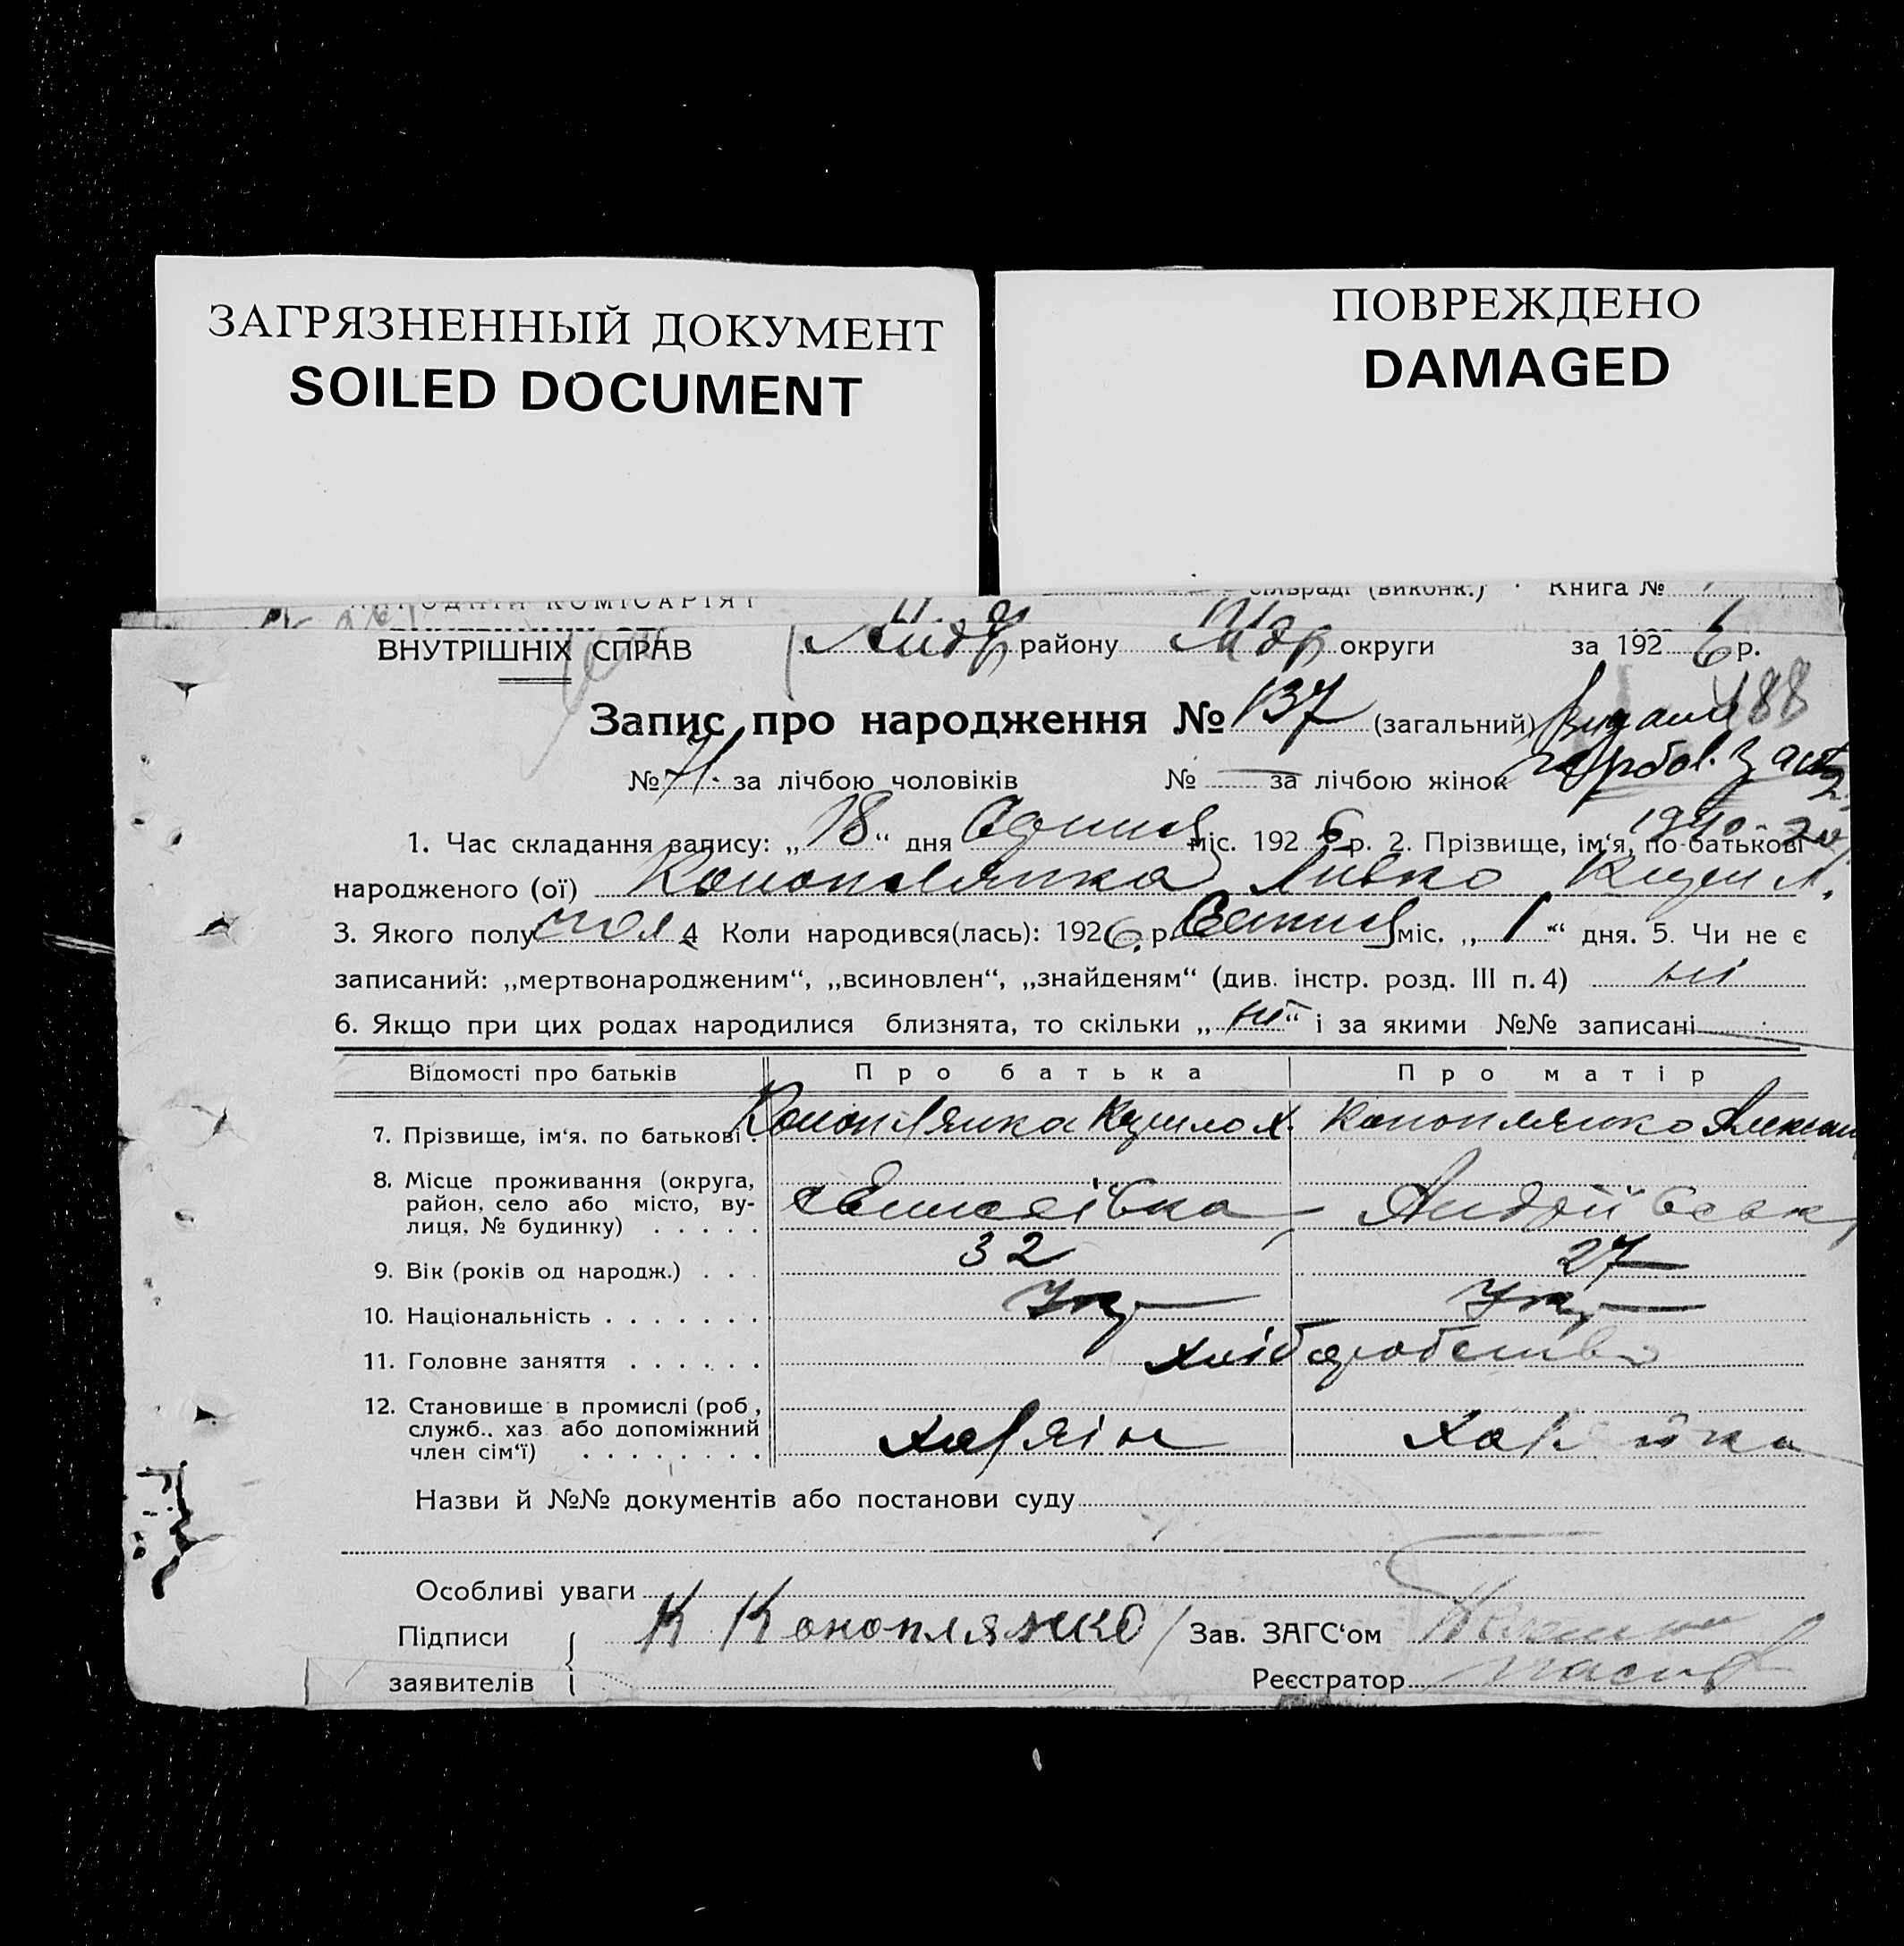 ЗАГРЯЗНЕННЫЙ ДОКУМЕНТ
SOILED DOCUMENT
ПОВРЕЖДЕНО
DAMAGED
сільраді (виконк.) Книга №
НАРОДНІЙ КОМІСАРІЯТ
ВНУТРІШНІХ СПРАВ району округи за 192 6 р.
Запис про народження № 137 (загальний) 188
№ 71 за лічбою чоловіків № — за лічбою жінок
1. Час складання запису: „ 18 “ дня міс. 192 6 р. 2. Прізвище, ім‘я, по-батькові
народженого (ої) Конопляшка
3. Якого полу чол 4 Коли народився(лась): 192 6. р. міс. „ 1 “ дня. 5. Чи не є
записаний: „мертвонародженим“, „всиновлен“, „знайденям“ (див. інстр. розд. III п. 4) ні
6. Якщо при цих родах народилися близнята, то скільки „ ні “ і за якими №№ записані
Відомості про батьків Про батька Про матір
7. Прізвище, ім‘я, по батькові Конопляшка Конопляшко
8. Місце проживання (округа,
район, село або місто, ву-
лиця, № будинку) Андріївськ
9. Вік (років од народж.) 32 27
10. Національність Укр Укр
11. Головне заняття хліборобство
12. Становище в промислі (роб,
служб., хаз або допоміжний
член сім‘ї) хазяїн хазяйка
Назви й №№ документів або постанови суду
Особливі уваги
Підписи К Кетоноплянко Зав. ЗАГС‘ом
заявителів Реєстратор